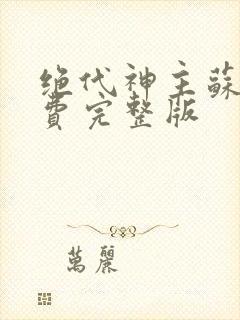 绝代神主蘇
費完整版
萬麗